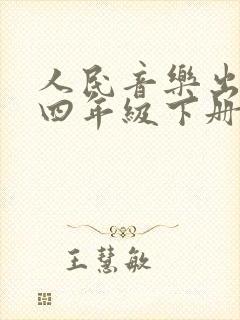 人民音樂出
四年級下册
王慧敏